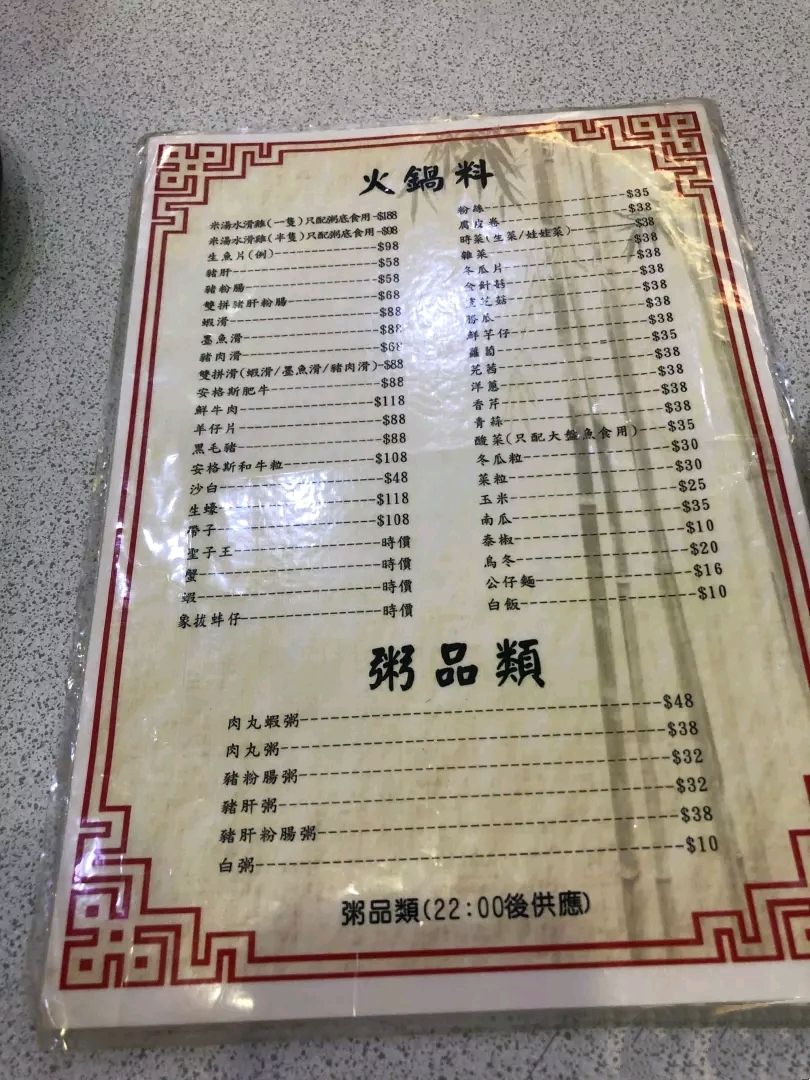 火鍋料
米湯水滑雞(一隻)只配粥底食用-$188
米湯水滑雞(半隻)只配粥底食用-$98
生魚片(例)----------$98
豬肝----------$58
豬粉腸----------$58
雙拼豬肝粉腸----------$68
蝦滑----------$88
墨魚滑----------$88
豬肉滑----------$68
雙拼滑(蝦滑/墨魚滑/豬肉滑)-$88
安格斯肥牛----------$88
鮮牛肉----------$118
羊仔片----------$88
黑毛豬----------$88
安格斯和牛粒----------$108
沙白----------$48
生蠔----------$118
帶子----------$108
聖子王----------時價
蟹----------時價
蝦----------時價
象拔蚌仔----------時價
粉絲----------$35
腐皮卷----------$38
時菜(生菜/娃娃菜)----------$38
雜菜----------$38
冬瓜片----------$38
金針菇----------$38
靈芝菇----------$38
勝瓜----------$38
鮮芋仔----------$38
蘿蔔----------$35
芫茜----------$38
洋蔥----------$38
香芹----------$38
青蒜----------$38
酸菜(只配大盤魚食用)---$35
冬瓜粒----------$30
菜粒----------$30
玉米----------$25
南瓜----------$35
泰椒----------$10
烏冬----------$20
公仔麵----------$16
白飯----------$10
粥品類
肉丸蝦粥----------$48
肉丸粥----------$38
豬粉腸粥----------$32
豬肝粥----------$32
豬肝粉腸粥----------$38
白粥----------$10
粥品類(22:00後供應)